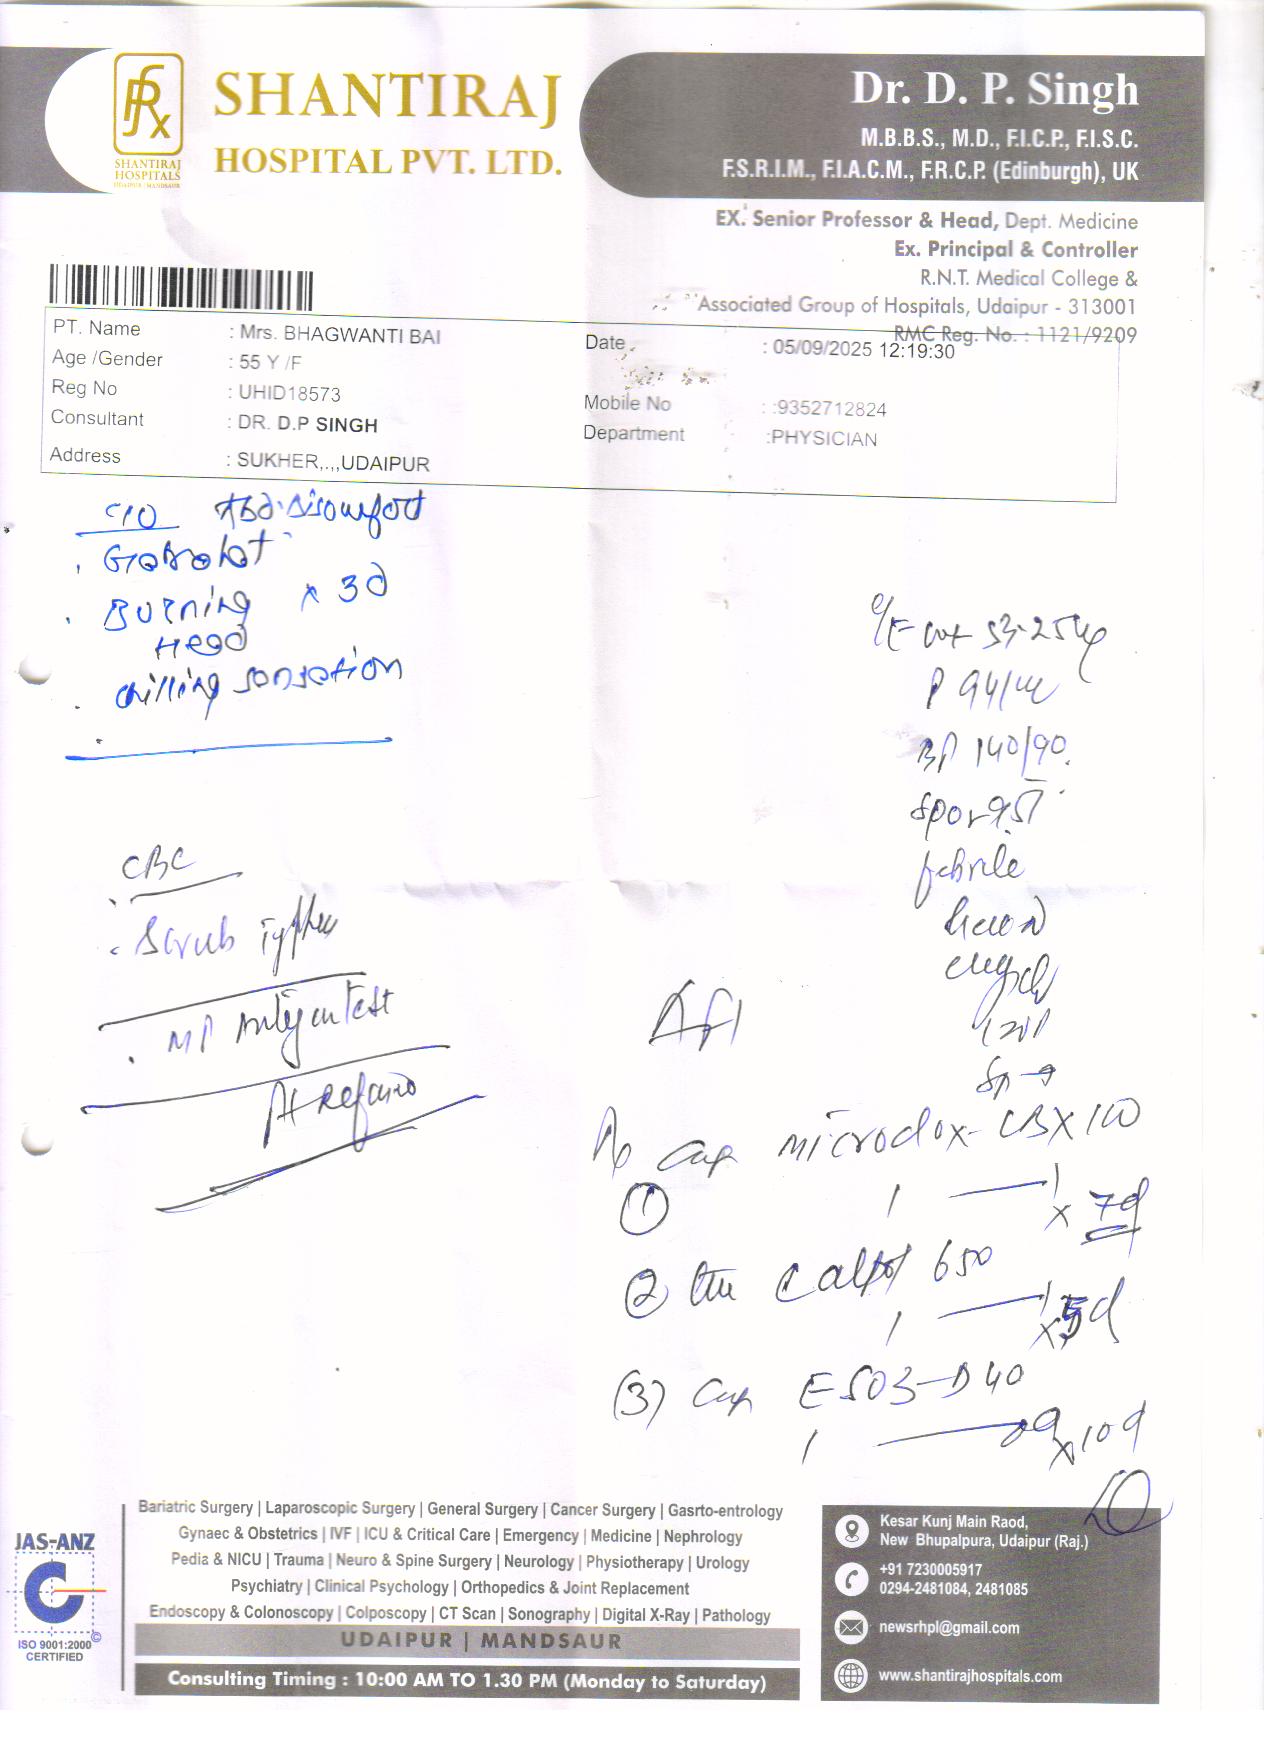 SHANTIRAJ
HOSPITAL PVT. LTD.
SHANTIRAJ
HOSPITALS
UDAIPUR / MANDSAUR
Dr. D. P. Singh
M.B.B.S., M.D., F.I.C.P., F.I.S.C.
F.S.R.I.M., F.I.A.C.M., F.R.C.P. (Edinburgh), UK
EX. Senior Professor & Head, Dept. Medicine
Ex. Principal & Controller
R.N.T. Medical College &
Associated Group of Hospitals, Udaipur - 313001
RMC Reg. No. : 1121/9209
PT. Name : Mrs. BHAGWANTI BAI
Date : 05/09/2025 12:19:30
Age /Gender : 55 Y /F
Reg No : UHID18573
Mobile No : :9352712824
Consultant : DR. D.P SINGH
Department :PHYSICIAN
Address : SUKHER,.,,UDAIPUR
C/O Abd. Discomfort
Burning x 3d
Head
chilling sensation
O/E wt 53.25kg
P 94/m
BP 140/90
SpO2 95%
febrile
CBC
Scrub Typhus
MP Antigen Test
AFI
Cap Microdox-LBX 100
1 — 1 x 7d
① 
② Calpol 650
1 — 1 x 5d
(3) Cap ESO3-D 40
1 — x 10d
Bariatric Surgery | Laparoscopic Surgery | General Surgery | Cancer Surgery | Gasrto-entrology
Gynaec & Obstetrics | IVF | ICU & Critical Care | Emergency | Medicine | Nephrology
Pedia & NICU | Trauma | Neuro & Spine Surgery | Neurology | Physiotherapy | Urology
Psychiatry | Clinical Psychology | Orthopedics & Joint Replacement
Endoscopy & Colonoscopy | Colposcopy | CT Scan | Sonography | Digital X-Ray | Pathology
UDAIPUR | MANDSAUR
Consulting Timing : 10:00 AM TO 1.30 PM (Monday to Saturday)
JAS-ANZ
ISO 9001:2000
CERTIFIED
Kesar Kunj Main Raod,
New Bhupalpura, Udaipur (Raj.)
+91 7230005917
0294-2481084, 2481085
newsrhpl@gmail.com
www.shantirajhospitals.com